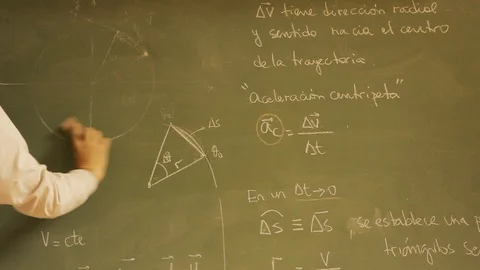 ΔV⃗ tiene dirección radial
y sentido hacia el centro
de la trayectoria.
"Aceleración centrípeta"
a⃗c = ΔV⃗ / Δt
Δs
r
V = cte
En un Δt→0
Δs ≡ Δs se establece una
triángulos
r = V